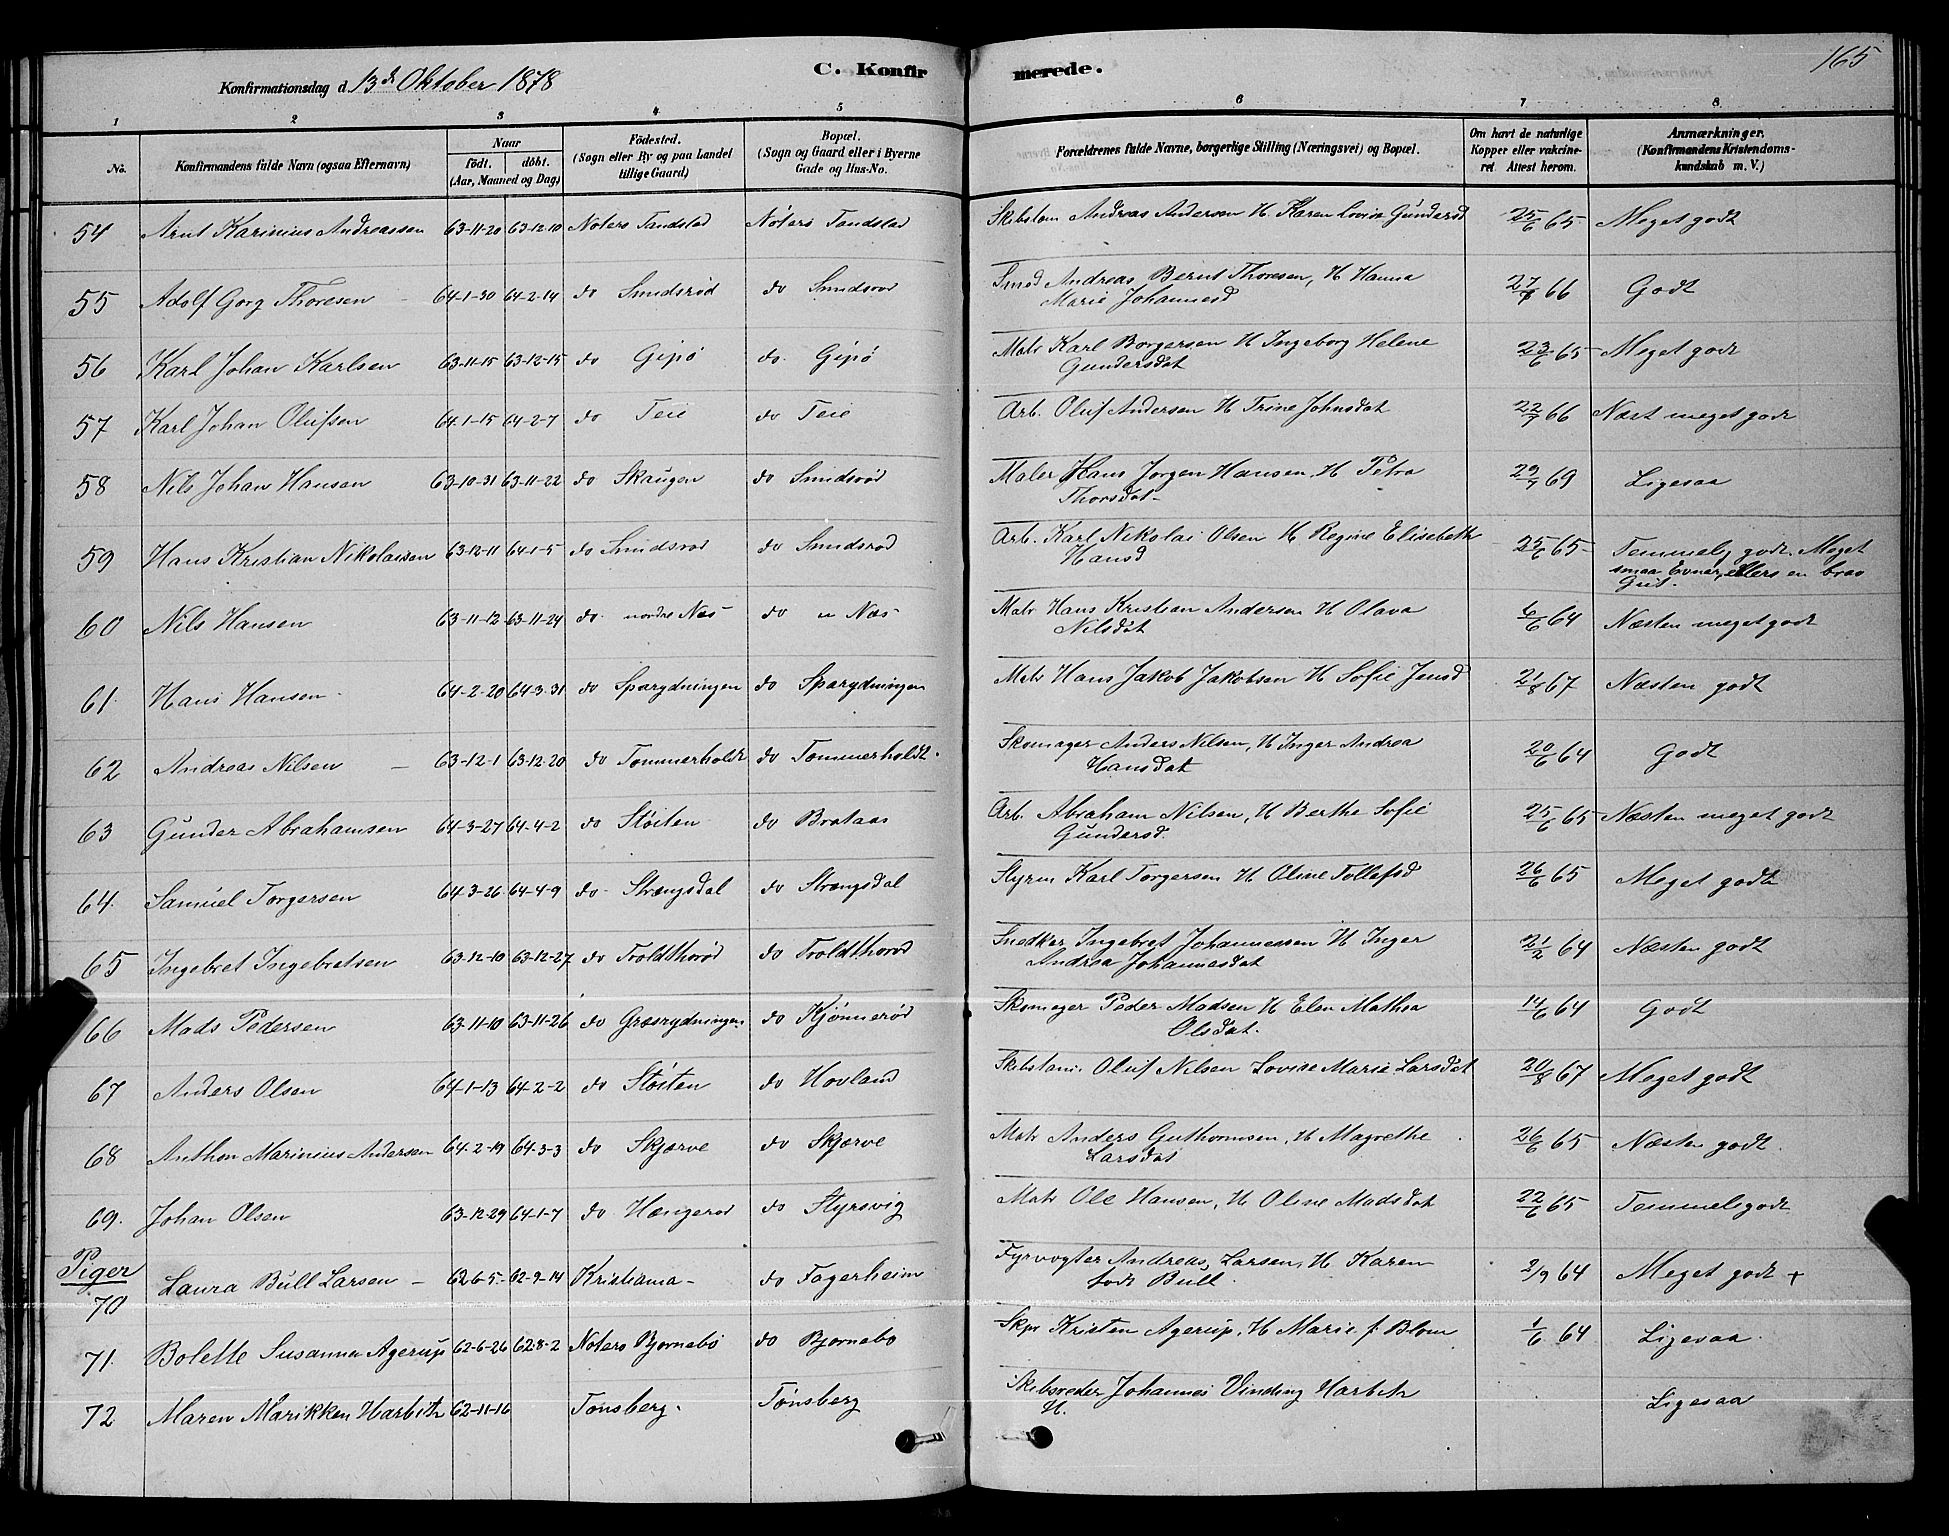 165
C. Konfirmerede.
Konfirmationsdag d. 13de Oktober 1878
1 2 3 4 5 6 7 8
No. | Konfirmandens fulde Navn (ogsaa Efternavn) | Naar födt. döbt. (Aar, Maaned og Dag) | Födested. (Sogn eller By og paa Landet tillige Gaard) | Bopæl. (Sogn og Gaard eller i Byerne Gade og Hus-No. | Forældrenes fulde Navne, borgerlige Stilling (Næringsvei) og Bopæl. | Om havt de naturlige Kopper eller vakcineret Attest herom. | Anmærkninger. (Konfirmandens Kristendomskundskab m. V.)
54 Arnt Karinius Andreassen 63-11-20 63-12-10 Nøterø Tandstad Nøterø Tandstad Skibstøm Andreas Andersen H Karen Lovise Gundersd 25/6 65 Meget godt
55 Adolf Gorg Thoresen 64-1-30 64-2-14 do Smidsrød do Smidsrød Smed Andreas Bernt Thoresen, H Hanna
Marie Johannesd 27/8 66 Godt
56 Karl Johan Karlsen 63-11-15 63-12-15 do Gipø do Gipø Matr Karl Borgersen H Ingeborg Helene
Gundersdat 23/6 65 Meget godt
57 Karl Johan Olufsen 64-1-15 64-2-7 do Teie do Teie Arb. Oluf Andersen H Trine Johnsdat 22/7 66 Næst meget godt
58 Nils Johan Hansen 63-10-31 63-11-22 do Skaugen do Smidsrød Maler Hans Jorgen Hansen, H Petra
Thorsdat 29/7 69 Ligesaa
59 Hans Kristian Nikolaisen 63-12-11 64-1-5 do Smidsrød do Smidsrød Arb. Karl Nikolai Olsen H Regine Elisebeth
Hansd 25/6 65 Temmelig godt. Meget
smaa Evner, ellers en brav
Gut.
60 Nils Hansen 63-11-12 63-11-24 do nordre Næs do n Næs Matr Hans Kristian Andersen H Olava
Nilsdat 6/6 64 Næsten meget godt
61. Hans Hansen 64-2-20 64-3-31 do Sparydningen do Sparydningen Matr Hans Jakob Jakobsen H Sofie Jensd 21/8 67 Næsten godt
62 Andreas Nilsen 63-12-1 63-12-20 do Tommerholdt do Tommerholdt Skomager Anders Nilsen, H Inger Andrea
Hansdat 20/6 64 Godt
63 Gunder Abrahamsen 64-3-27 64-4-2 do Støiten do Brataas Arb. Abraham Nilsen, H Berthe Sofie
Gundersd. 25/6 65 Næsten meget godt
64. Samuel Torgersen 64-3-26 64-4-9 do Strengsdal do Strengsdal Styrm Karl Torgersen H Oline Tollefsd 26/6 65 Meget godt
65 Ingebret Ingebretsen 63-12-10 63-12-27 do Troldthorød do Troldthorød Snedker Ingebret Johannessen H Inger
Andrea Johannesdat 21/2 64 Næsten godt
66 Mads Pedersen 63-11-10 63-11-26 do Græsrydningen do Kjønnerød Skomager Peder Madsen H Elen Mathea
Olsdat. 14/6 64 Godt
67 Anders Olsen 64-1-13 64-2-2 do Støiten do Hovland Skibstøm. Oluf Nilsen Lovise Marie Larsdat 20/8 67 Meget godt
68 Anthon Marinius Andersen 64-2-19 64-3-3 do Skjærve do Skjærve Matr Anders Guthormsen, H Magrethe
Larsdat 26/6 65 Næsten godt.
69. Johan Olsen 63-12-29 64-1-7 do Hængerød do Styrsvig Matr Ole Hansen, H Oline Madsdat 22/6 65 Temmeligodt
Piger
70 Laura Bull Larsen 62-6-5 62-9-14 Kristiania do Fagerheim Fyrvogter Andreas Larsen, H Karen
født Bull 2/9 64 Meget godt +
71. Bolette Susanna Agerup 62-6-26 62-8-2 Nøterø Bjørnebø do Bjørnebø Skpr Kristen Agerup, H Marie f. Blom 1/6 64 Ligesaa
72 Maren Marikken Harbitz 62-11-16 Tønsberg. Tønsberg Skibsreder Johannes Vinding Harbitz
H. Ligesaa